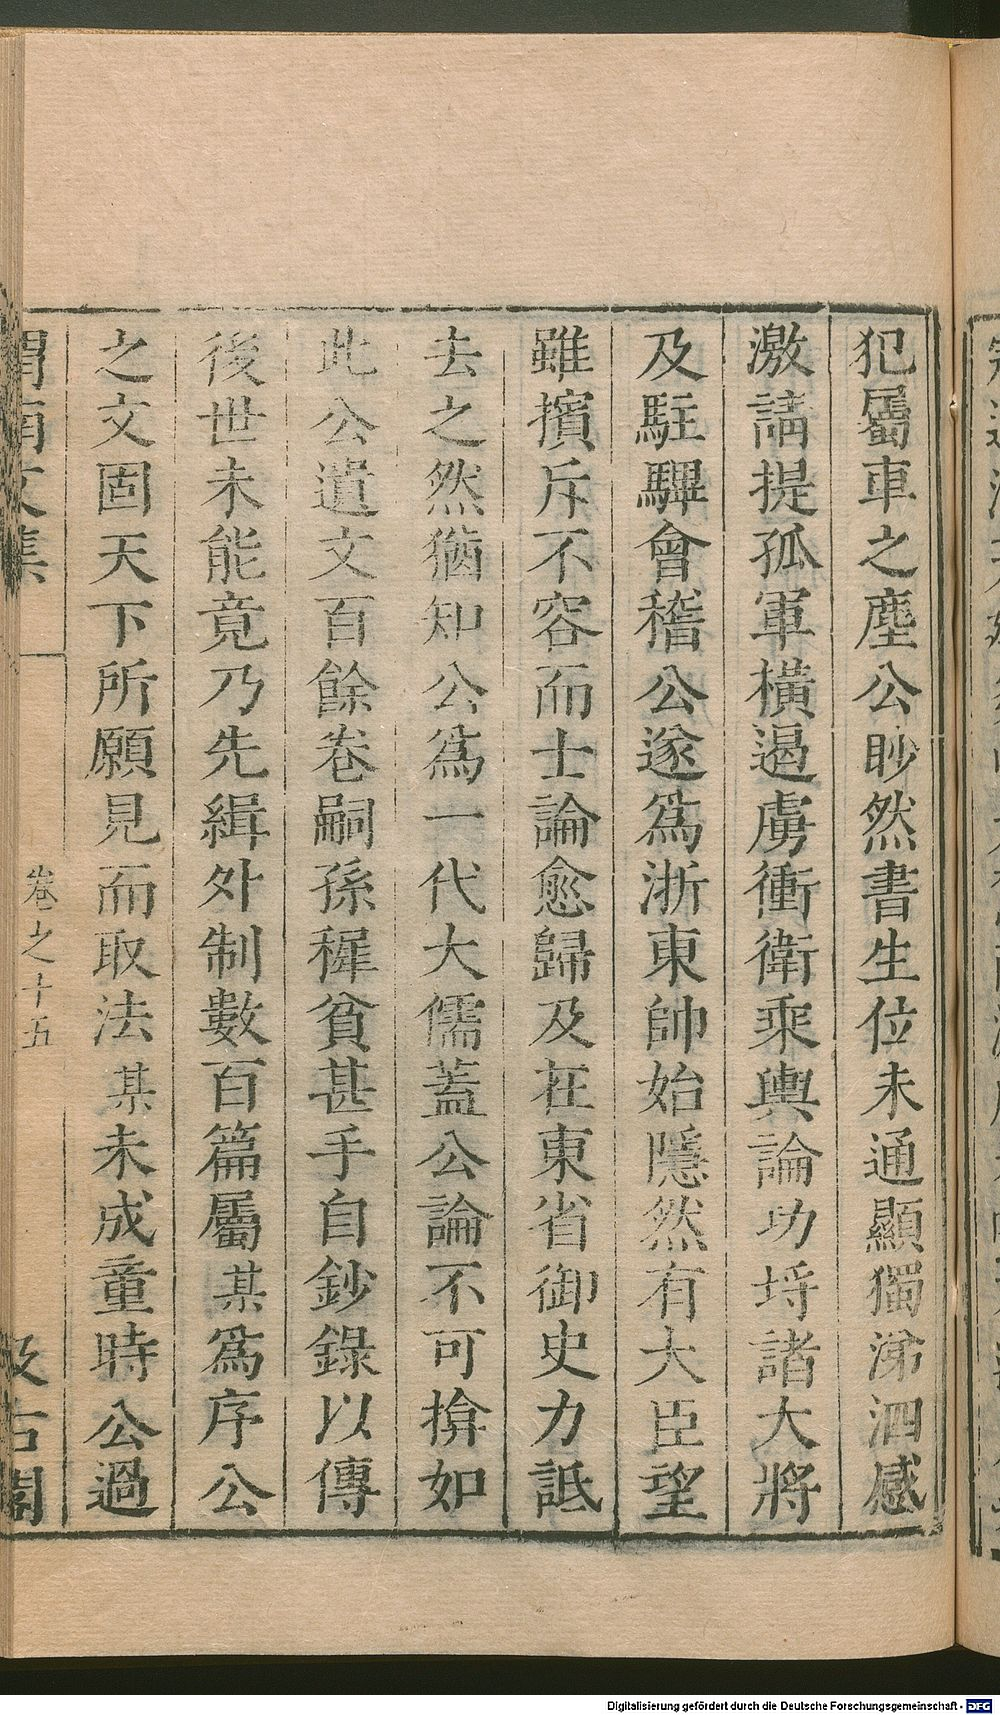 犯屬車之塵公眇然書生位未通顯獨涕泗感
激請提孤軍橫遏虜衝衛乘輿論功埒諸大將
及駐驆會稽公遂爲浙東帥始隱然有大臣望
雖擯斥不容而士論愈歸及在東省御史力詆
去之然猶知公爲一代大儒蓋公論不可揜如
此公遺文百餘卷嗣孫穉貧甚手自鈔錄以傳
後世未能竟乃先緝外制數百篇屬某爲序公
之文固天下所願見而取法某未成童時公過
渭南文集
卷之十五
汲古閣
Digitalisierung gefördert durch die Deutsche Forschungsgemeinschaft - DFG